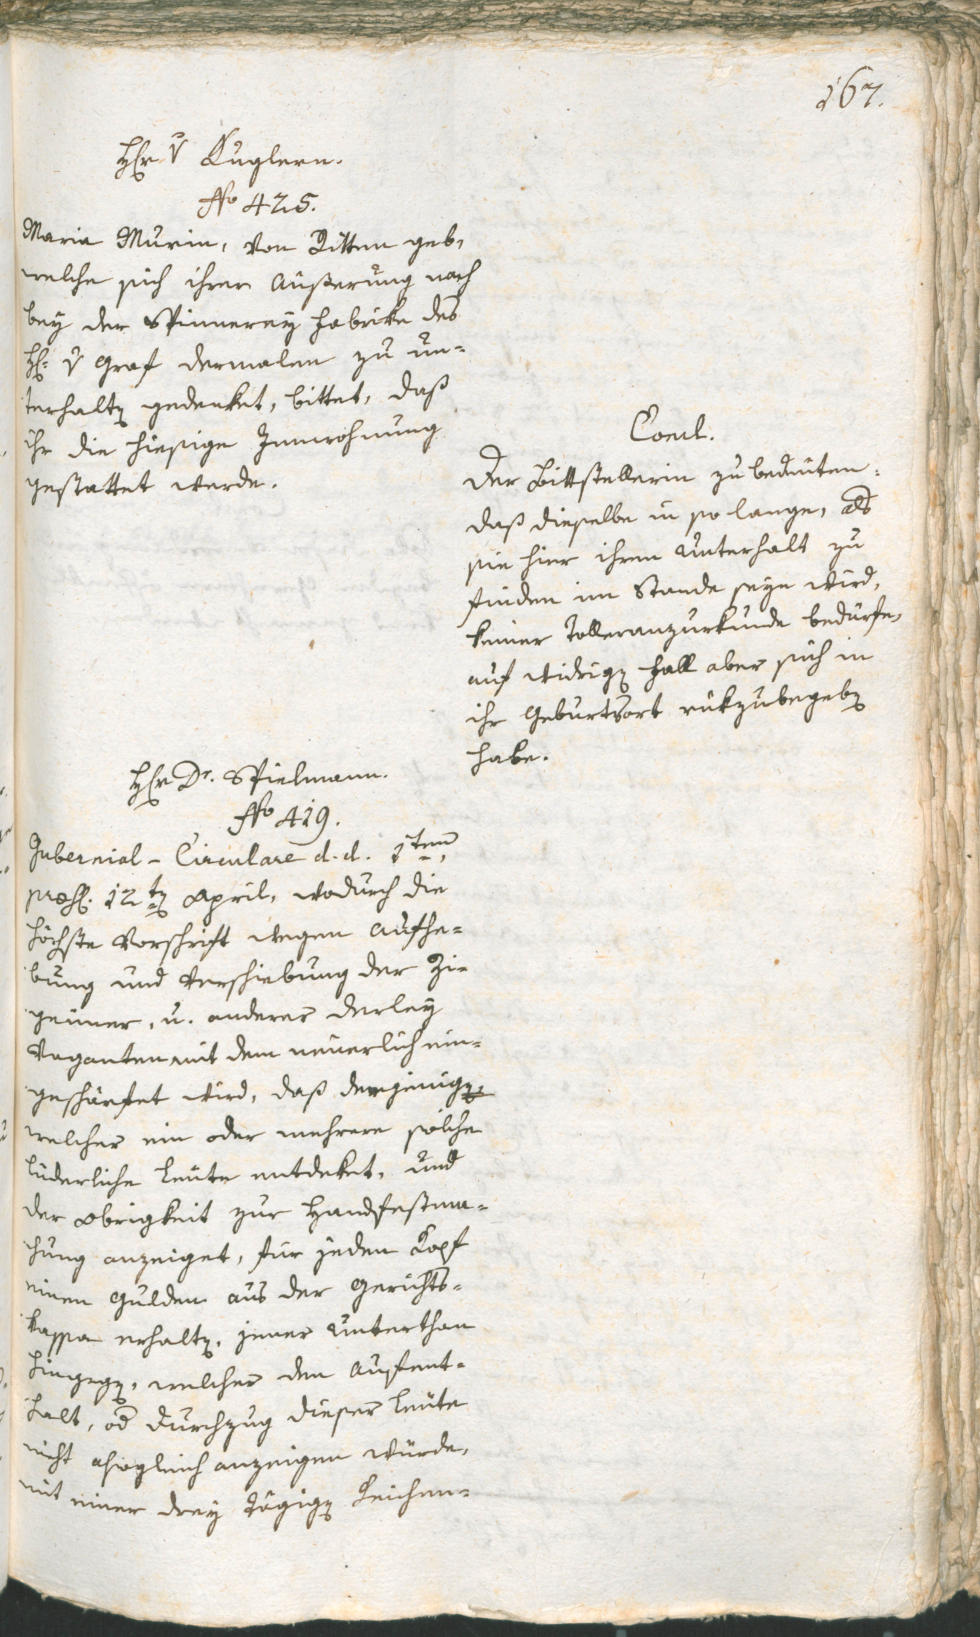 167.
Hr v Kuglern.
No 425.
Maria Murin, von Ritten geb,
welche sich ihrer Äußerung nach
bey der Spinnerey Fabrike des
H: v Graf dermalen zu un-
terhalten gedenket, bittet, daß
ihr die hiesige Innwohnung
gestattet werde.
Concl.
Der Bittstellerin zu bedeuten:
daß dieselbe in so lange, als
sie hier ihren Unterhalt zu
finden im Stande seyn wird,
keiner Tolleranzurkunde bedürfe,
auf widrigen Fall aber sich in
ihr Geburtsort rükzubegeben
habe.
Hr Dr. Spielmann.
No 419.
Gubernial-Circulare d. d. 1ten,
præs. 12ten April, wodurch die
höchste Vorschrift wegen Aufhe-
bung und Verschiebung der Zi-
geuner, u. anderer derley
Vaganten mit dem neuerlich ein-
geschärfet wird, daß demjenigen,
welcher ein oder mehrere solche
lüderliche Leute entdeket, und
der Obrigkeit zur Handfestma-
chung anzeiget, für jeden Kopf
einen Gulden aus der Gerichts-
kassa erhalten, jener Unterthan
hingegen, welcher den Aufent-
halt, od Durchzug dieser Leute
nicht alsogleich anzeigen würde,
mit einer drey tägigen Zeichen-